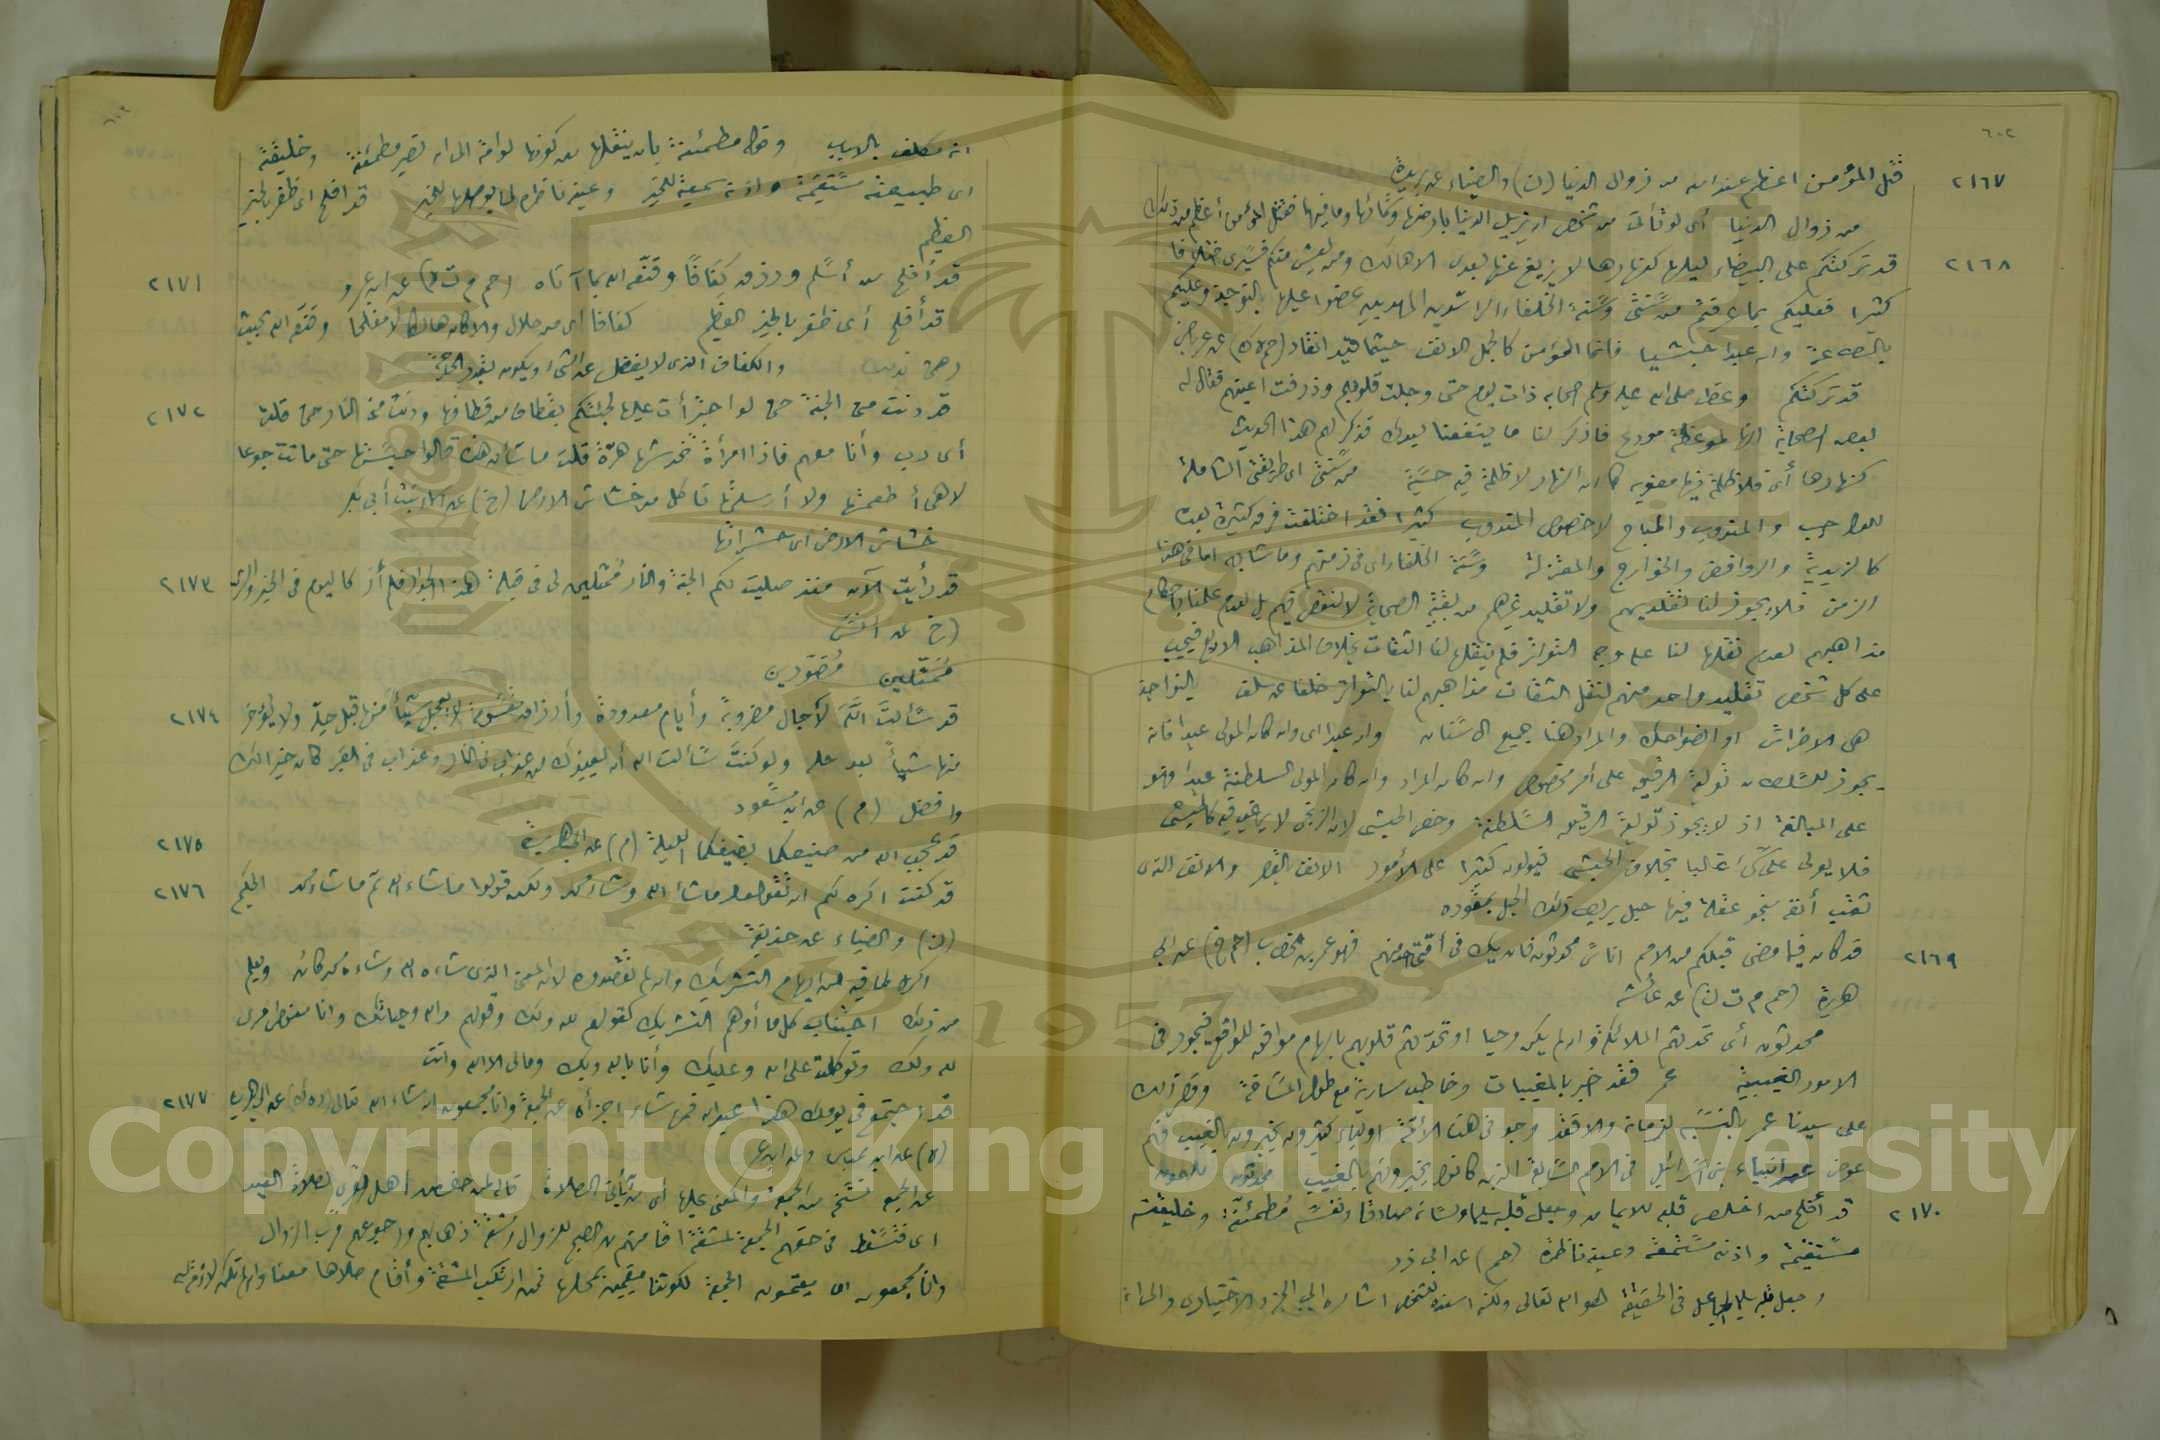 ٦٠٢
٢١٦٧ قتل المؤمن اعظم عند الله من زوال الدنيا (ن) والضياء عن بريدة
من زوال الدنيا أي لو تأتى من شخص ان يزيل الدنيا بارضها وسمائها وما فيها فقتل المؤمن أعظم من ذلك
٢١٦٨ قد تركتكم على البيضاء ليلها كنهارها لا يزيغ عنها بعدى الا هالك ومن يعش منكم فسيرى اختلافا
كثيرا فعليكم بما عرفتم من سنتى وسنة الخلفاء الراشدين المهديين عضوا عليها بالنواجذ وعليكم
بالطاعة وان عبدا حبشيا فانما المؤمن كالجمل الانف حيثما قيد انقاد (حم ه ك) عن عرباض
قد تركتكم وعظ صلى الله عليه وسلم اصحابه ذات يوم حتى وجلت قلوبهم وذرفت اعينهم فقال له
بعض الصحابة انها لموعظة مودع فاذكر لنا ما ينفعنا بعدك فذكر لهم هذا الحديث
كنهارها أى فلا ظلمة فيها معنوية كما ان النهار لا ظلمة فيه حسية من سنتى اى طريقتى الشاملة
للواجب والمندوب والمباح لا خصوص المندوب كثيرا فقد اختلفت فرق كثيرة بعده
كالزيدية والروافض والخوارج والمعتزلة وسنة الخلفاء اى فى زمنهم وما شابهه اما فى هذا
الزمن فلا يجوز لنا تقليدهم ولا تقليد غيرهم من بقية الصحابة لا لنقص فيهم بل لعدم علمنا باحكام
مذاهبهم لعدم نقلها لنا على وجه التواتر فلم ينقلها لنا الثقات بخلاف المذاهب الاربع فيجب
على كل شخص تقليد واحد منهم لنقل الثقات مذاهبهم لنا بالتواتر خلفا عن سلف بالنواجذ
هى الاضراس او الضواحك والمراد هنا جميع الاسنان وان عبدا اى وان كان المولى عبدا فانه
يجوز للسلطان تولية الرقيق على أمر مخصوص وان كان المراد وان كان المولى السلطنة عبدا فهو
على المبالغة اذ لا يجوز تولية الرقيق السلطنة وخص الحبشى لان الزنجى لا يرغب فيه كالحبشى
فلا يولى على شىء غالبا بخلاف الحبشى فيولونه كثيرا على الأمور الانف بالقصر والانف الذى
ثقب أنفه بنحو عقلة فيها حبل يربط ذلك الجمل بمقوده
٢١٦٩ قد كان فيما مضى قبلكم من الامم اناس محدثون فان يك فى أمتى احد منهم فهو عمر بن الخطاب (حم خ) عن ابى
هريرة (حم م ت ن) عن عائشة
محدثون أى تحدثهم الملائكة وان لم يكن وحيا او تحدثهم قلوبهم بالهام موافق للواقع فيجود فى
الامور الغيبية عمر فقد اخبر بالمغيبات وخاطب سارية مع طول المسافة وقصر ذلك
على سيدنا عمر بالنسبة لزمانه والا فقد وجد فى هذه الأمة اولياء كثيرون يخبرون بالغيب فهم
عوض عن انبياء بنى اسرائيل فى الامم السابقة الذين كانوا يخبرونهم بالمغيب محدثون ملهمون
٢١٧٠ قد أفلح من اخلص قلبه للايمان وجعل قلبه سليما ولسانه صادقا ونفسه مطمئنة وخليقته
مستقيمة واذنه مستمعة وعينه ناظرة (حم) عن ابى ذر
وجعل قلبه سليما الجاعل فى الحقيقة هو الله تعالى ولكنه اسنده للشخص اشارة الى الجزء الاختيارى والى
انه مكلف بالاسباب وقوله مطمئنة بان ينقلها من كونها لوامة الى ان تصير مطمئنة وخليقته
اى طبيعته مستقيمة واذنه سميعة للخير وعينه ناظرة لما يوصلها للخير قد افلح اى ظفر بالخير
العظيم
٢١٧١ قد أفلح من أسلم ورزق كفافا وقنعه الله بما آتاه (حم م ت ه) عن ابن عمرو
قد أفلح أى ظفر بالخير العظيم كفافا اى من حلال والا كان هالكا لا مفلحا وقنعه الله بحيث
رضى بذلك والكفاف الذى لا يفضل عن الشىء ويكون بقدر الحاجة
٢١٧٢ قد دنت منى الجنة حتى لو اجترأت عليها لجئتكم بقطاف من قطافها ودنت منى النار حتى قلت
أى رب وأنا معهم فاذا امرأة تخدشها هرة قلت ما شأن هذه قالوا حبستها حتى ماتت جوعا
لا هى أطعمتها ولا أرسلتها تأكل من خشاش الارض (خ) عن اسماء بنت أبى بكر
خشاش الارض اى حشراتها
٢١٧٣ قد رأيت الآن منذ صليت لكم الجنة والنار ممثلتين لى فى قبلة هذا الجدار فلم أر كاليوم فى الخير والشر
(خ) عن انس
ممثلتين مصورتين
٢١٧٤ قد سألت الله لآجال مضروبة وأيام معدودة وأرزاق مقسومة لا يعجل شيأ منها قبل حله ولا يؤخر
منها شيأ بعد حله ولو كنت سألت الله أن يعيذك من عذاب فى النار وعذاب فى القبر كان خيرا لك
وافضل (م) عن ابن مسعود
٢١٧٥ قد عجب الله من صنيعكما بضيفكما الليلة (م) عن ابى هريرة
٢١٧٦ قد كنت اكره لكم ان تقولوا ما شاء الله وشاء محمد ولكن قولوا ما شاء الله ثم ما شاء محمد الحكيم
(ن) والضياء عن حذيفة
اكره لما فيه من ايهام التشريك وان لم تقصدوه لان المعنى الذى شاءه الله وشاءه محمد كائن ويعلم
من ذلك اجتناب كل ما أوهم التشريك كقولهم لله ولك وقولهم والله وحياتك وانا مفوض امرى
لله ولك وتوكلت على الله وعليك وأنا بالله وبك ومالى الا الله وانت
٢١٧٧ قد اجتمع فى يومكم هذا عيدان فمن شاء اجزأه عن الجمعة وانا مجمعون ان شاء الله تعالى (د ه ك) عن ابى هريرة
(ه) عن ابن عباس وعن ابن عمر
عن الجمعة
اى فتسقط فى حقهم الجمعة لمشقة
وانا مجمعون اى مقيمون الجمعة لكوننا مقيمين بمحلها فمن ارتكب المشقة وأقام صلاها معنا
Copyright © King Saud University
1957